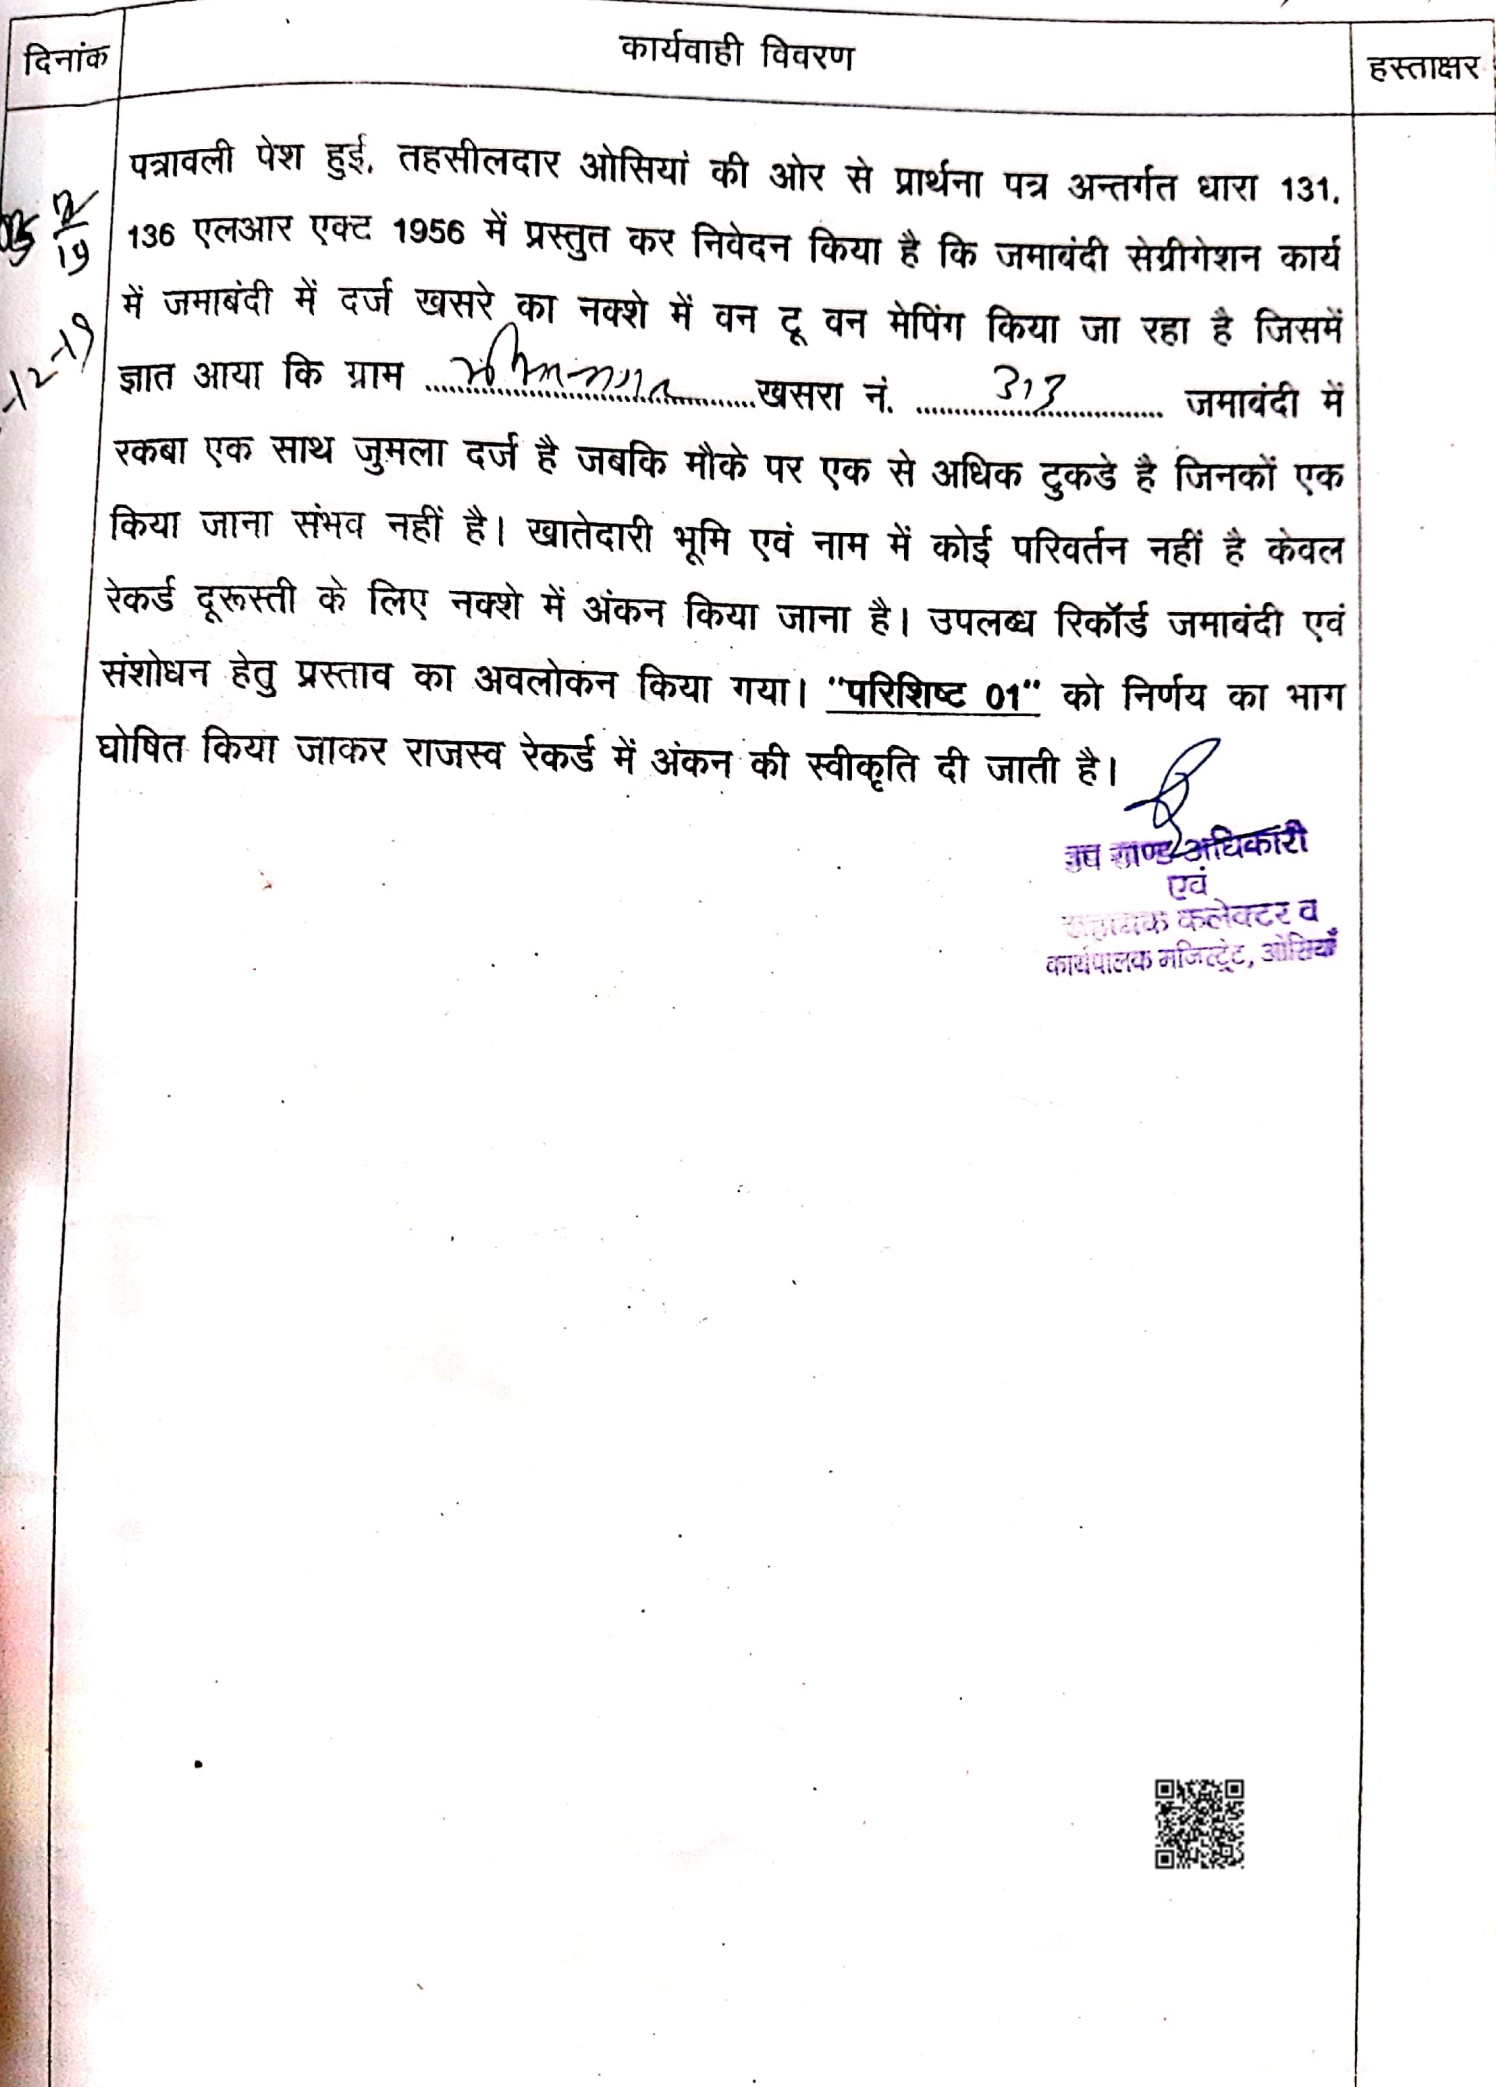 दिनांक
कार्यवाही विवरण
हस्ताक्षर
पत्रावली पेश हुई, तहसीलदार ओसियां की ओर से प्रार्थना पत्र अन्तर्गत धारा 131,
136 एलआर एक्ट 1956 में प्रस्तुत कर निवेदन किया है कि जमाबंदी सेग्रीगेशन कार्य
में जमाबंदी में दर्ज खसरे का नक्शे में वन टू वन मेपिंग किया जा रहा है जिसमें
ज्ञात आया कि ग्राम ..............................खसरा नं. ......313...... जमाबंदी में
रकबा एक साथ जुमला दर्ज है जबकि मौके पर एक से अधिक टुकडे है जिनकों एक
किया जाना संभव नहीं है। खातेदारी भूमि एवं नाम में कोई परिवर्तन नहीं है केवल
रेकर्ड दूरूस्ती के लिए नक्शे में अंकन किया जाना है। उपलब्ध रिकॉर्ड जमाबंदी एवं
संशोधन हेतु प्रस्ताव का अवलोकन किया गया। "परिशिष्ट 01" को निर्णय का भाग
घोषित किया जाकर राजस्व रेकर्ड में अंकन की स्वीकृति दी जाती है।
उप खण्ड अधिकारी
एवं
सहायक कलेक्टर व
कार्यपालक मजिस्ट्रेट, ओसियाँ
12
19
-12-19